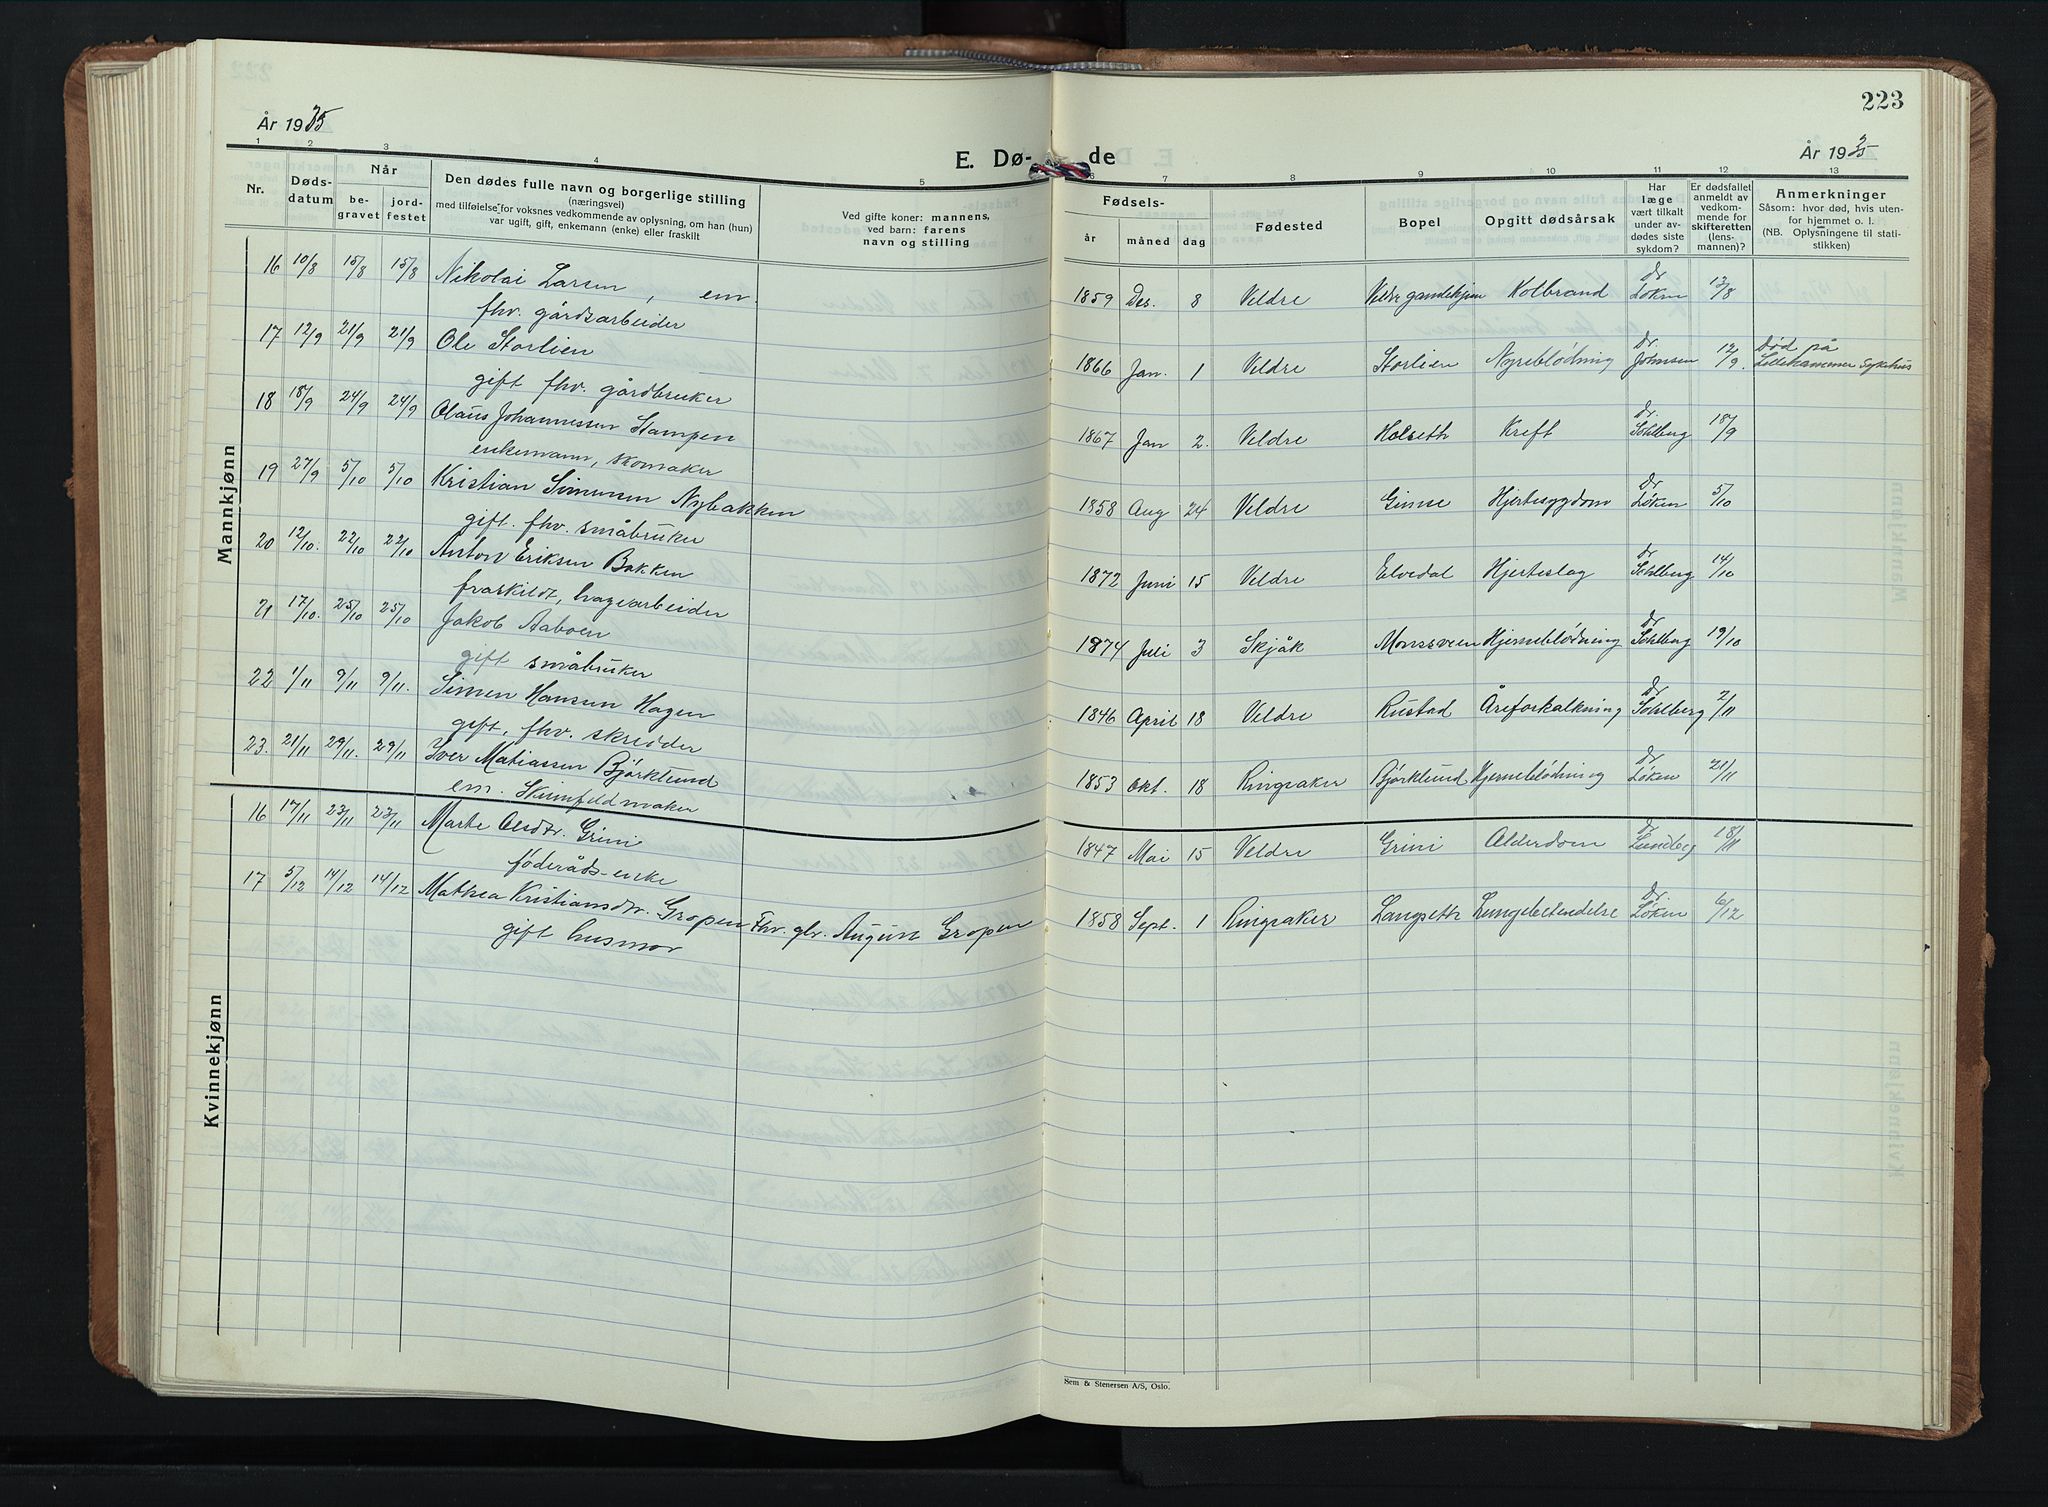 223
År 1935
År 1935
E. Dø- de
1 2 3 4 5 6 7 8 9 10 11 12 13
Nr.
Døds-
datum
Når
be-
gravet
jord-
festet
Den dødes fulle navn og borgerlige stilling
(næringsvei)
med tilføielse for voksnes vedkommende av oplysning, om han (hun)
var ugift, gift, enkemann (enke) eller fraskilt
Ved gifte koner: mannens,
ved barn: farens
navn og stilling
Fødsels-
år måned dag
Fødested
Bopel
Opgitt dødsårsak
Har
læge
vært tilkalt
under av-
dødes siste
sykdom?
Er dødsfallet
anmeldt av
vedkom-
mende for
skifteretten
(lens-
mannen)?
Anmerkninger
Såsom: hvor død, hvis uten-
for hjemmet o. l.
(NB. Oplysningene til stati-
stikken)
Mannkjønn
16 10/8 15/8 15/8 Nikolai Larsen, em. 1859 Des. 8 Veldre Veldre gamlehjem Kolbrand dr Løken 12/8
fhv. gårdsarbeider
17 12/9 21/9 21/9 Ole Storlien 1866 Jan. 1 Veldre Storlien Nyreblödning Dr. Johnsen 12/9. Død på
Lillehammer Sykehus
gift fhv. gårdbruker
18 18/9 24/9 24/9 Olaus Johannessen Stampen 1867 Jan 2. Veldre Holseth Kreft dr. Sohlberg 18/9
enkemann, skomaker
19 27/9 5/10 5/10 Kristian Simensen Nybakken 1858 Aug 24 Veldre Gimse Hjertesygdom Dr Løken 5/10
gift. fhv. småbruker
20 12/10. 22/10 22/10 Anton Eriksen Bakken 1872 Juni 15 Veldre Elvedal Hjerteslag Dr Sohlberg 14/10
fraskildt, hagearbeider
21 17/10. 25/10 25/10 Jakob Aaboen 1874 Juli 3 Skjåk Monssveen Hjerneblödning dr Sohlberg 19/10
gift småbruker
22 1/11 9/11 9/11. Simen Hansen Hagen 1846 April 18 Veldre Rustad Åreforkalkning Dr Sohlberg 2/11
gift, fhv. skredder
23. 21/11 29/11. 29/11 Iver Matiassen Björklund 1853 Okt. 18 Ringsaker Björklund Hjerneblödning dr Løken 21/11
em. Skinnfeldmaker
Kvinnekjønn
16 17/11 23/11 23/11 Marte Olsdtr. Grini 1847 Mai 15 Veldre Grini Alderdom dr Lundberg 18/11
föderåds-enke
17 5/12 14/12 14/12 Mathea Kristiansdtr. Gropen Fhv. gbr. August Gropen 1858 Sept. 1 Ringsaker Langseth Lungebetendelse Dr. Løken 6/12
gift husmor
Sem & Stenersen A/S, Oslo.